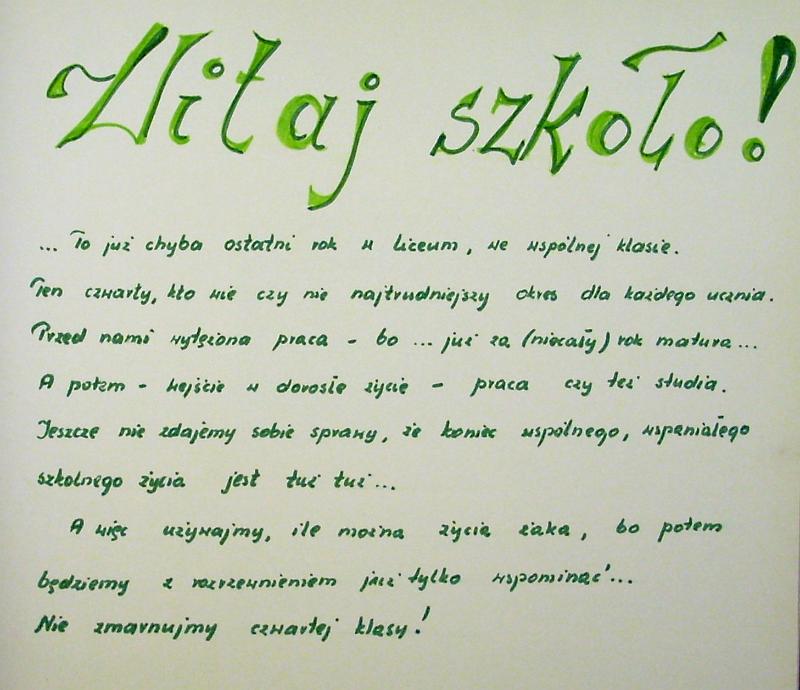 Witaj szkoło!
... To już chyba ostatni rok w liceum, we wspólnej klasie.
Ten czwarty, kto wie czy nie najtrudniejszy okres dla każdego ucznia.
Przed nami wytężona praca - bo ... już za (niecały) rok matura...
A potem - wejście w dorosłe życie - praca czy też studia.
Jeszcze nie zdajemy sobie sprawy, że koniec wspólnego, wspaniałego
szkolnego życia jest tuż tuż...
A więc używajmy, ile można życia żaka, bo potem
będziemy z rozrzewnieniem już tylko wspominać...
Nie zmarnujmy czwartej klasy!